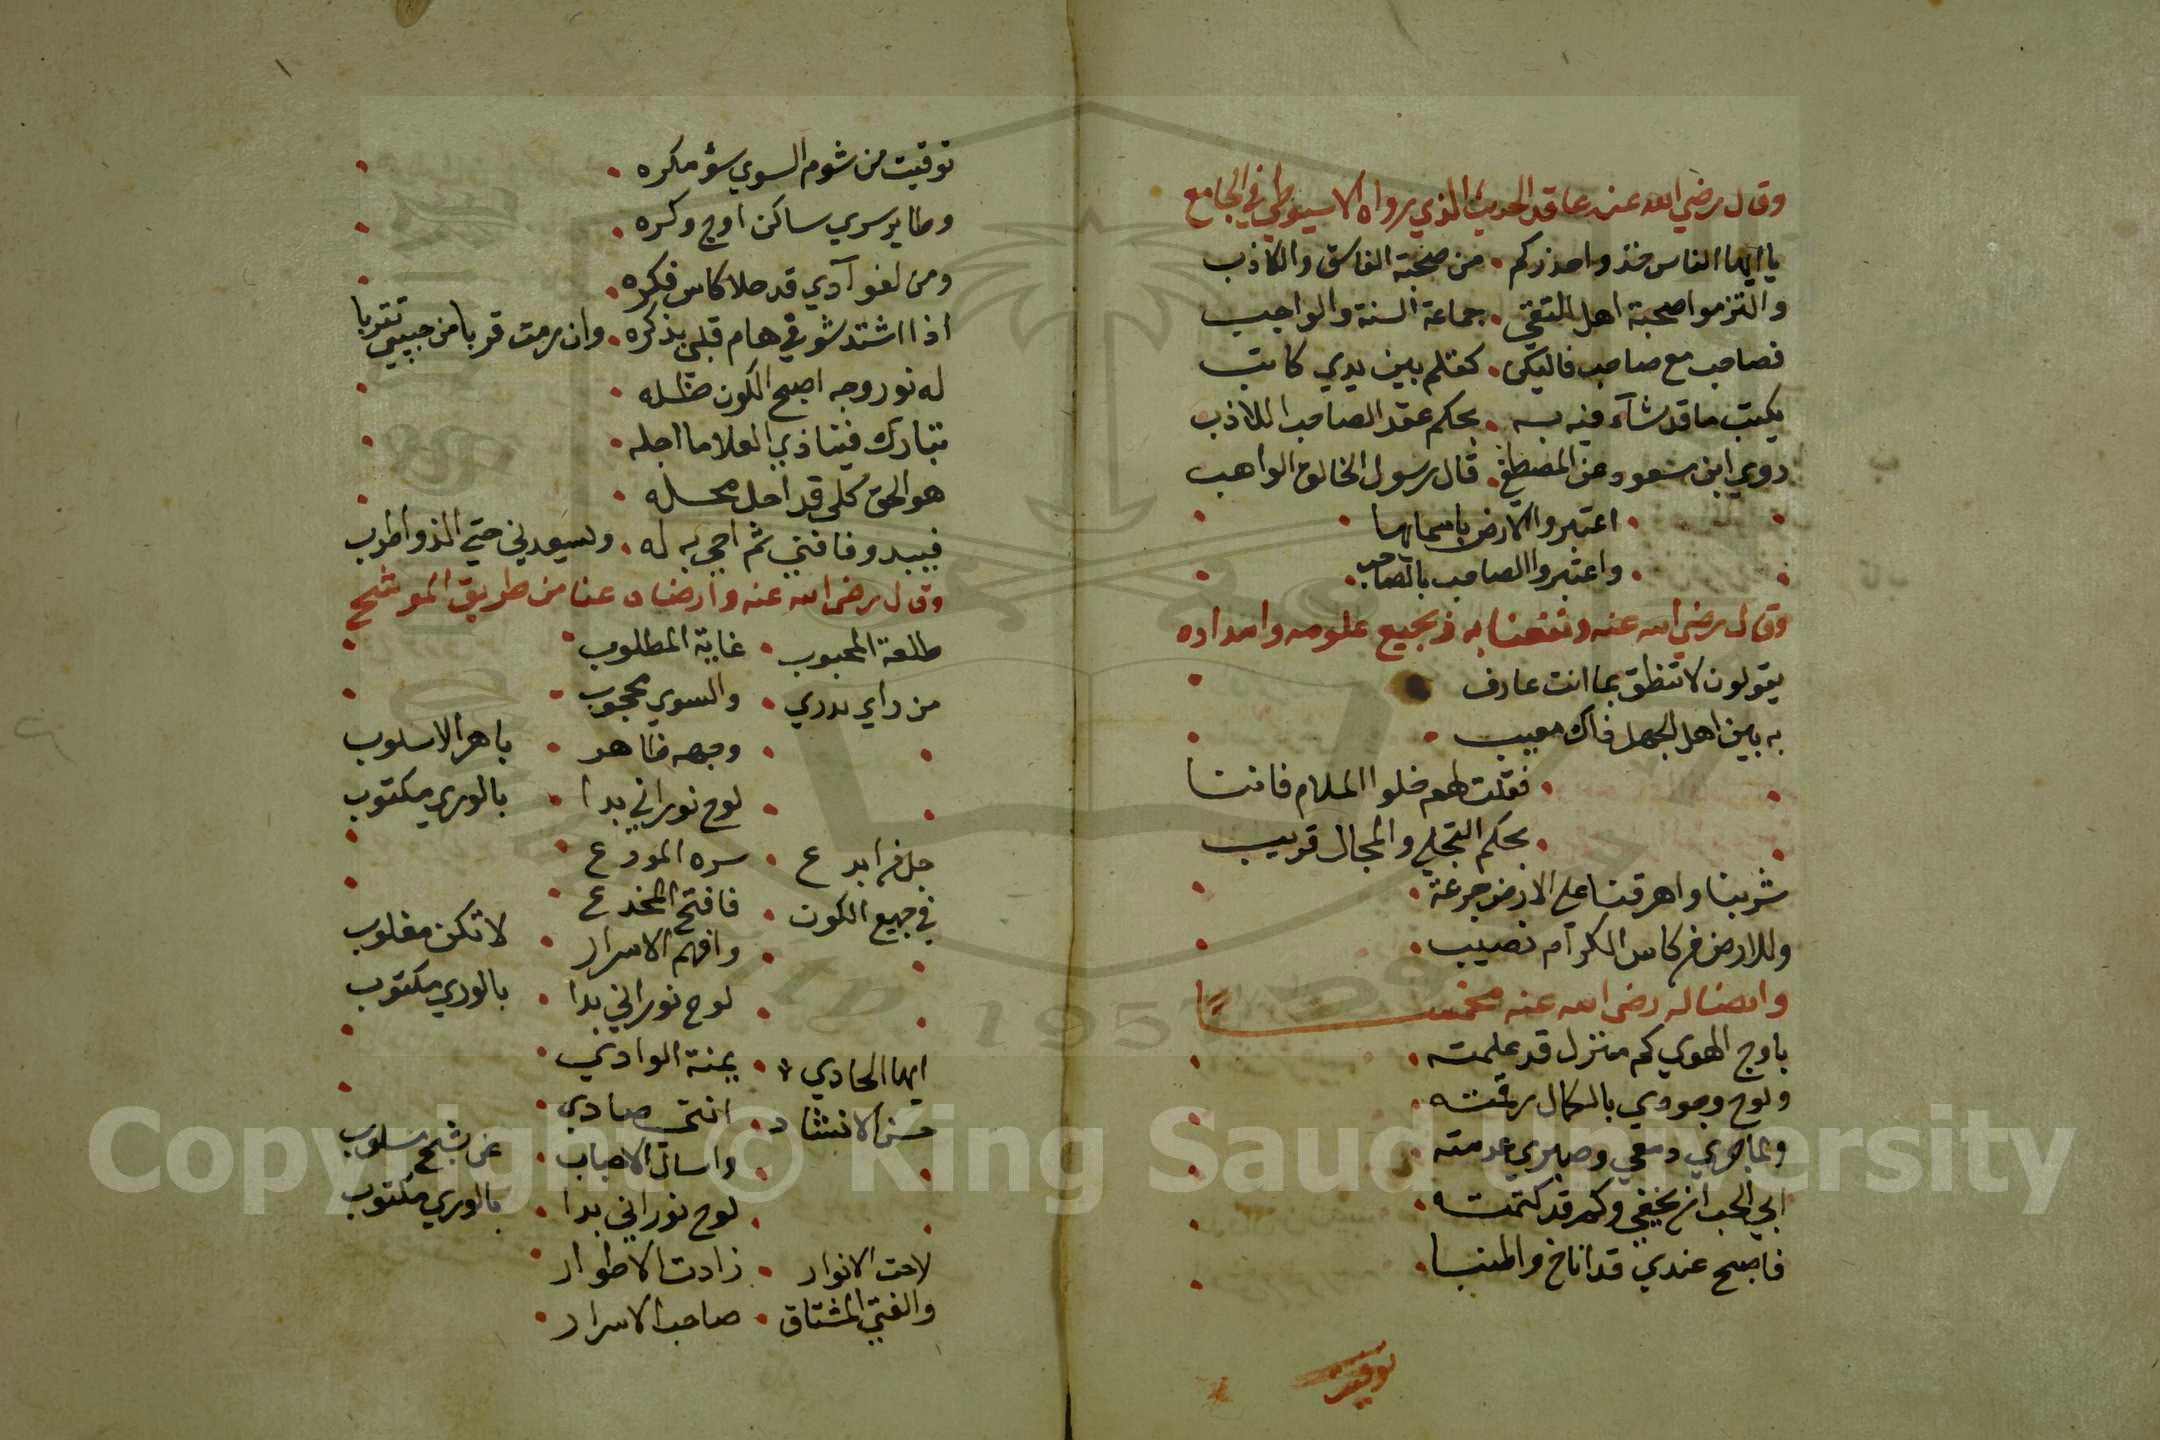 وقال رضي الله عنه عاقد الحديث الذي رواه الاسيوطي في الجامع
يا ايها الناس خذوا حذركم من صحبة الفاسق والكاذب
والتزموا صحبة اهل التقي جماعة السنة والواجب
فصاحب مع صاحب فاليكن كقلم بين يدي كاتب
يكتب ما قد شآء فيه به بحكم عقد الصاحب اللاذب
روي ابن مسعود عن المصطفي قال رسول الخالق الواهب
اعتبروا الارض باسمايها
واعتبروا الصاحب بالصاحب
وقال رضي الله عنه ونفعنا به وبجميع علومه وامداده
يقولون لا تنطق بما انت عارف
به بين اهل الجهل فاك معيب
فقلت لهم خلوا الملام فاننا
بحكم التجلي والمجال قريب
شربنا واهرقنا علي الارض جرعة
وللارض من كاس الكرآم نصيب
وايضا له رضي الله عنه مخمسا
باوج الهوي كم منزل قد علمته
ولوح وجودي بالكمال رقمته
ولما جري دمعي وصبري عدمته
ابي الحب ان يخفي وكم قد كتمته
فاصبح عندي قد اناخ واطنبا
توقيت
توقيت من شوم السوي سؤ مكره
وطاير سري ساكن اوج وكره
ومن لفوآدي قد حلا كاس فكره
اذا اشتد شوقي هام قلبي بذكره وان رمت قربا من حبيبي تقربا
له نور وجه اصبح الكون ظله
تبارك فينا ذي العلا ما اجله
هو الحق كلي قد احل محله
فيبدو فافني ثم احي به له ويسعدني حتي الذ واطرب
وقال رضي الله عنه وارضاه عنا من طريق الموشح
طلعة المحبوب غاية المطلوب
من راي بدري والسوي محجوب
وجهه ظاهر باهر الاسلوب
لوح نوراني بدا بالوري مكتوب
جل من ابدع سره المودع
في جميع الكون فافتح المخدع
وافهم الاسرار لا تكن مغلوب
لوح نوراني بدا بالوري مكتوب
ايها الحادي يمنة الوادي
حسن الانشاد انني صادي
واسال الاحباب عن شبح مسلوب
لوح نوراني بدا بالوري مكتوب
لاحت الانوار زادت الاطوار
والفتي المشتاق صاحب الاسرار
Copyright © King Saud University
1957